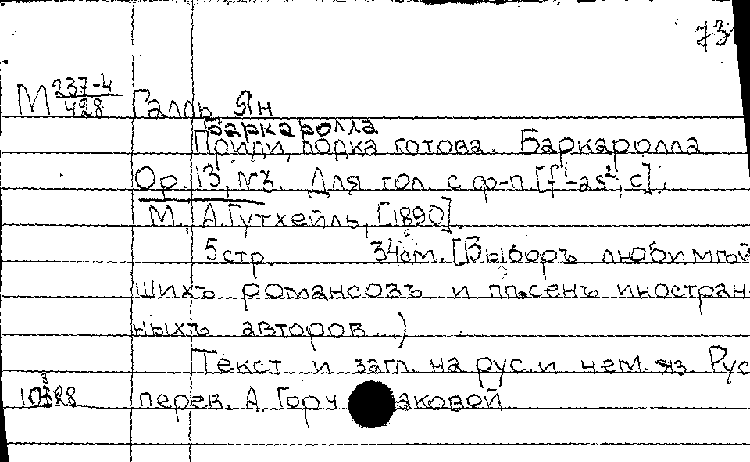 73
М 237-4/428 Галль Ян
Баркаролла
Приди, лодка готова. Баркаролла
Op. 13, №3. Для гол. с ф-п. [f'-as², c].
М., А. Гутхейль, [1890].
5 стр. 34 см. [Выборъ любимѣй
шихъ романсовъ и пѣсенъ иностран-
ныхъ авторов...)
Текст и загл. на рус. и нем. яз. Рус
перев. А. Горчаковой